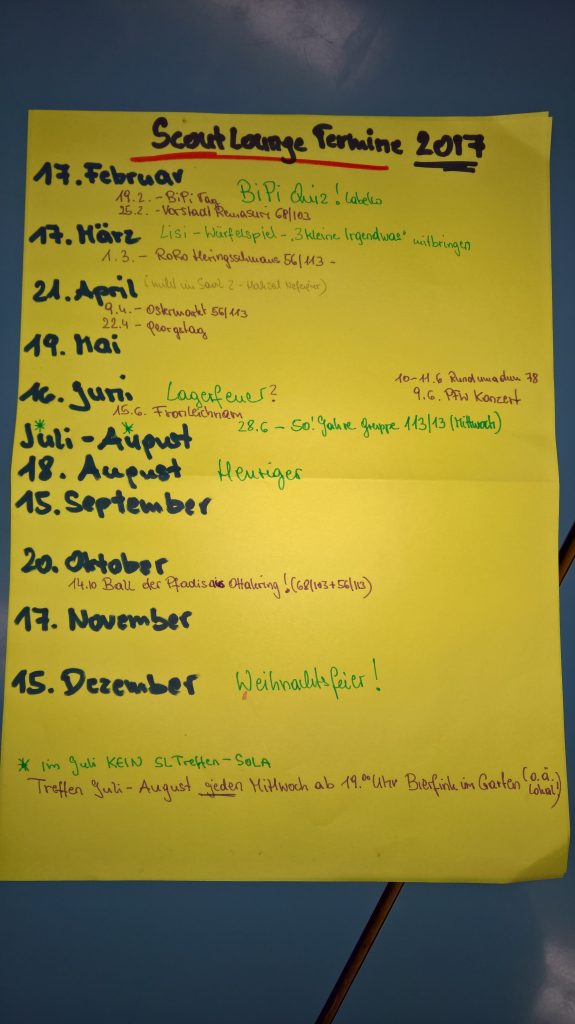 Scout Lounge Termine 2017
17. Februar
19.2. - BiPi Tag BiPi Quiz! Labeko
25.2. - Vorstadt Remasuri 68/103
17. März Lisi - Würfelspiel - "3 kleine Irgendwas" mitbringen
1.3. - RoRo Heringsschmaus 56/113 -
21. April (nicht im Saal 2 -
9.4. - Ostermarkt 56/113
22.4 - Georgstag
19. Mai
16. Juni Lagerfeuer? 10-11.6 Rundumadum 78
15.6. Fronleichnam 9.6. PFW Konzert
Juli - August 28.6 - 50! Jahre Gruppe 113/13 (Mittwoch)
18. August Heuriger
15. September
20. Oktober
14.10 Ball der Pfadis aus Ottakring! (68/103+56/113)
17. November
15. Dezember Weihnachtsfeier!
* im Juli KEIN SLTreffen - SOLA
Treffen Juli - August jeden Mittwoch ab 19.00 Uhr Bierfink im Garten (o.ä. Lokal!)